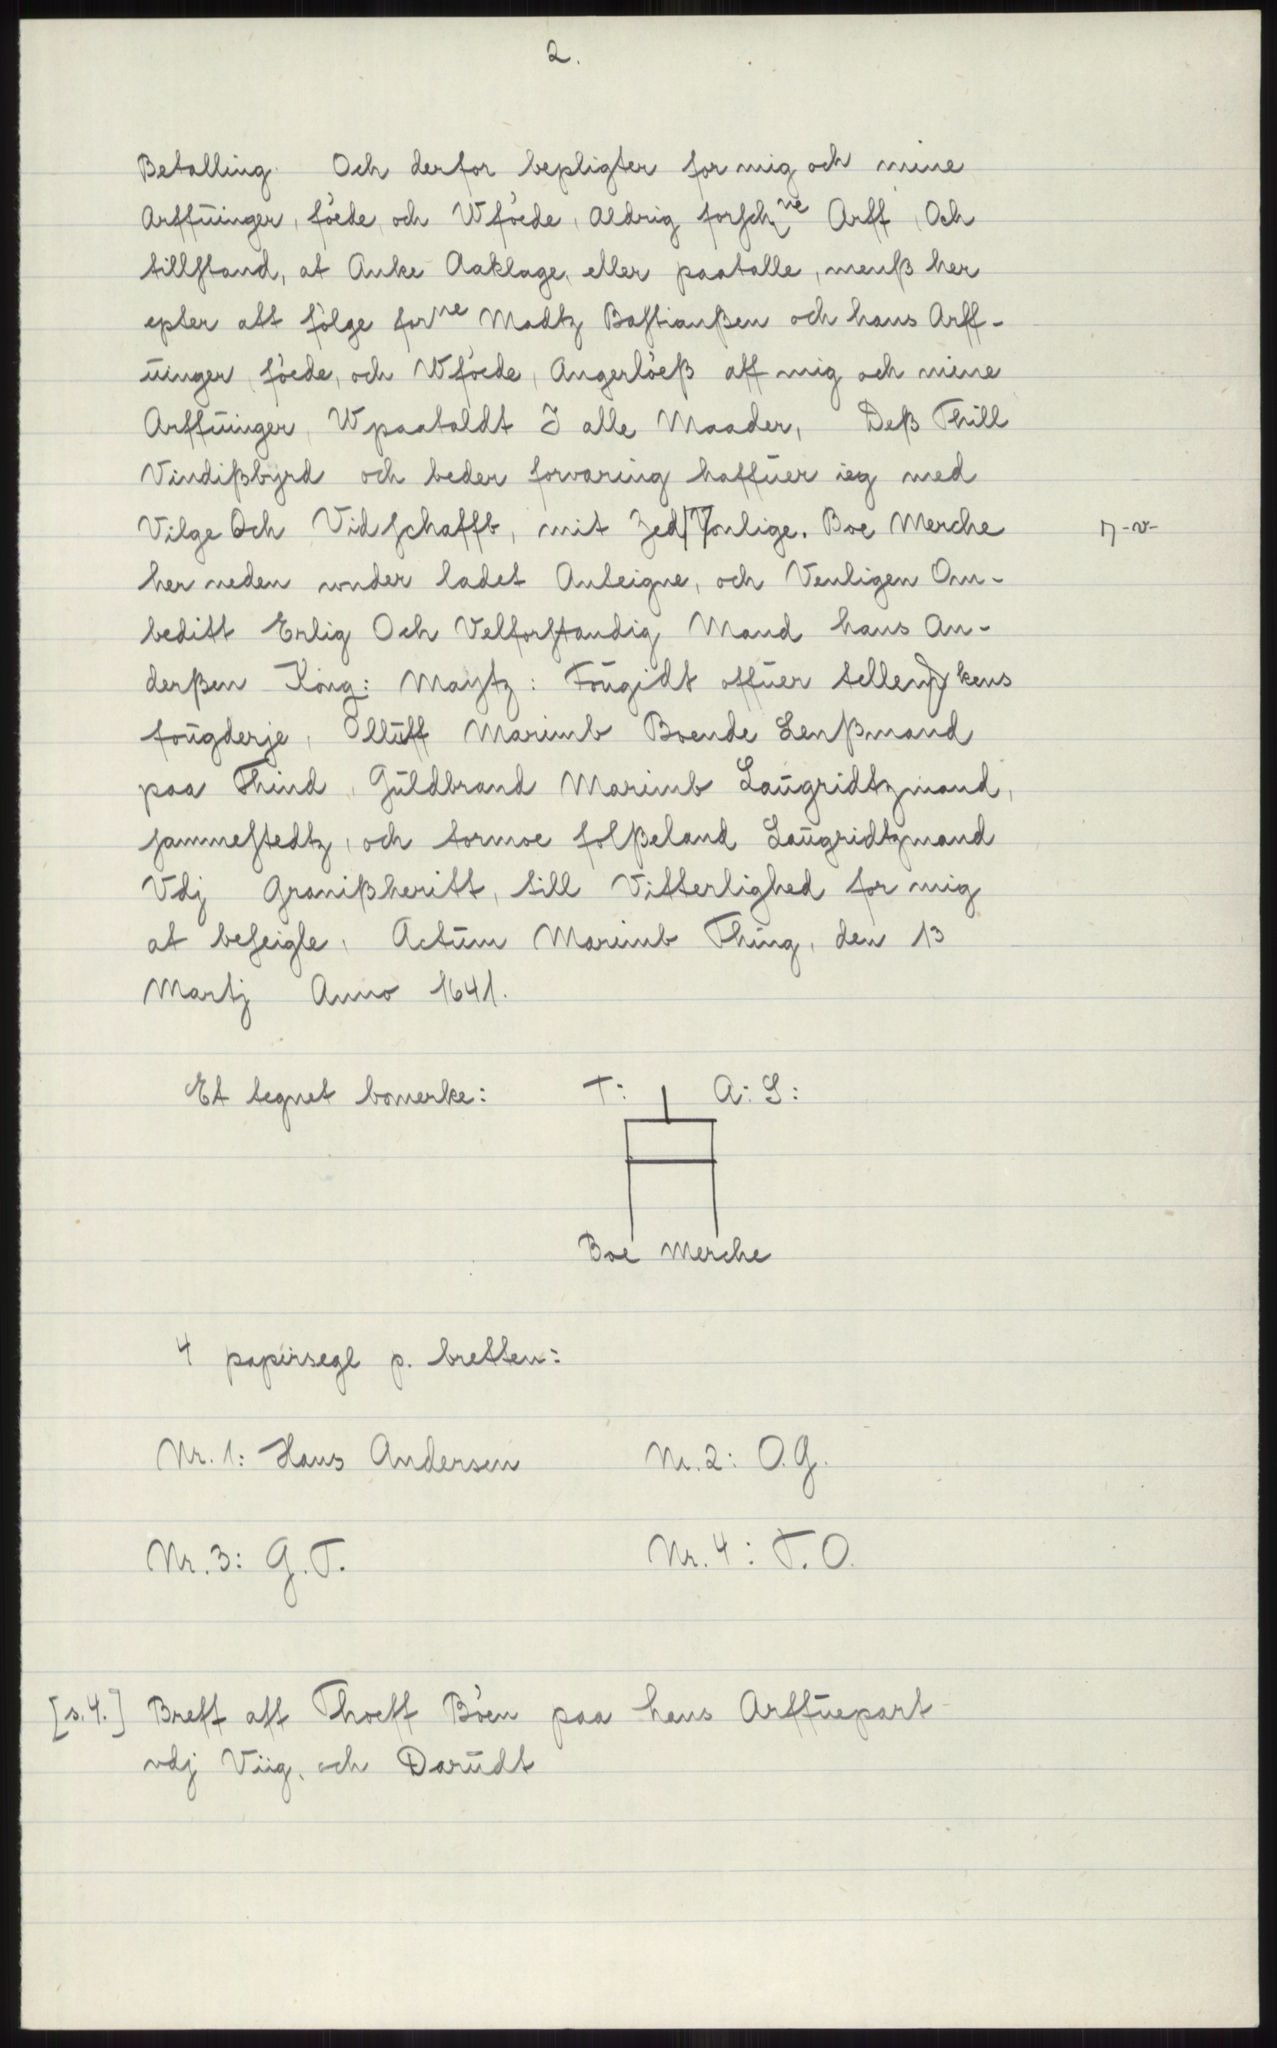 2.
Betalling. Och derfor bepligter for mig och mine
Arffüinger, föede, och Wföede, Aldrig forsch ne Arff, Och
tillstand, at Anke Aaklage, eller paatalle, menß her
epter att følge for ne Madtz Bastianßen och hans Arff-
üinger, föede, och Wföede, Angerlöeß aff mig och mine
Arffüinger, Wpaataldt I alle Maader, Deß Thill
Vindißbyrd och beder forvaring haffüer ieg med
Vilge Och Vidschaffb, mit Zed Vonlige. Boe Merche ꝛ-v-
her neden wnder ladet Anteigne, och Venligen Om-
beditt Erlig Och Velforstandig Mand hans An-
derßen Kong: Maytz: Foügidt offüer tellemkens
foügderje, Ollüff Marimb Boende Lenßmand
paa Thind, Güldbrand Marimb Laügridtzmand,
sammestedtz, och tormoe folßeland Laügridtzmand
Vdj Granißheritt, till Vitterlighed for mig
at beseigle, Actüm Marimb Thing, den 13
Martj Anno 1641.
Et tegnet bomerke: T: A: S:
Boe Merche
4 papirsegl p. bretten:
Nr. 1: Hans Andersen Nr. 2: O.G.
Nr. 3: G.T. Nr. 4: T.O.
[s.4.] Breff aff Thoeff Böen paa hans Arffüepart
vdj Viig, och Darüdt